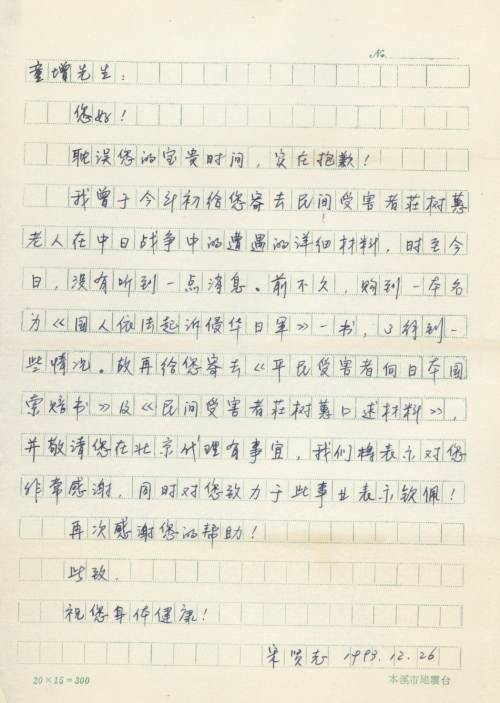 No.
童增先生：
您好！
耽误您的宝贵时间，实在抱歉！
我曾于今年初给您寄去民间受害者莊树蕙
老人在中日战争中的遭遇的详细材料，时至今
日，没有听到一点消息。前不久，购到一本名
为《国人依法起诉侵华日军》一书，了得到一
些情况。故再给您寄去《平民受害者向日本国
索赔书》及《民间受害者莊树蕙口述材料》，
并敬请您在北京代理有事宜，我们将表示对您
非常感谢，同时对您致力于此事业表示钦佩！
再次感谢您的帮助！
此致．
祝您身体健康！
宋贤志 1993.12.26
20×15=300 本溪市地震台